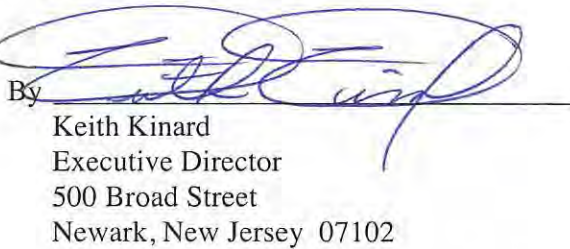 By Keith Kinard
Keith Kinard
Executive Director
500 Broad Street
Newark, New Jersey 07102